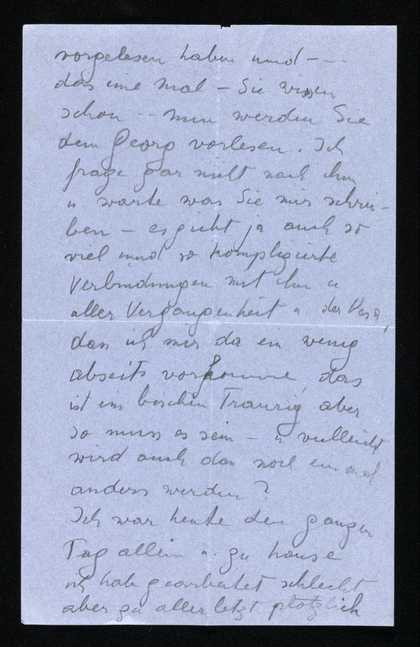 vorgelesen haben und – – –
das eine Mal – Sie wissen
schon – – nun werden Sie
dem Georg vorlesen. Ich
frage gar nicht nach ihm
u warte was Sie mir schrei-
ben – es giebt ja auch so
viel und so komplizierte
Verbindungen mit ihm u
aller Vergangenheit u. der
dass ich mir da ein wenig
abseits vorkomme, das
ist ein bischen Traurig aber
so muss es sein – u vielleicht
wird auch das noch ein mal
anders werden?
Ich war heute den ganzen
Tag allein u. zu hause
ich hab gearbeitet schlecht
aber zu allerletzt plötzlich